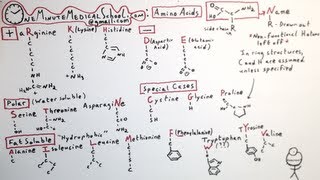 One Minute Medical School
@gmail.com
Amino Acids
Name
R - Drawn out
Non-Functional Halons
left off
side chain R
In ring structures,
C and H are assumed
unless specified
+ aRginine
K (Lysine)
Histidine
D (Aspartic Acid)
E (Glutamic acid)
Polar (Water soluble)
Serine
Threonine
AsparagiNe
Special Cases
Cystine
Glycine
Proline
Fat Soluble
"Hydrophobic"
Alanine
Isoleucine
Leucine
Methionine
F (Phenylalanine)
W Tryptophan
TYrosine
Valine